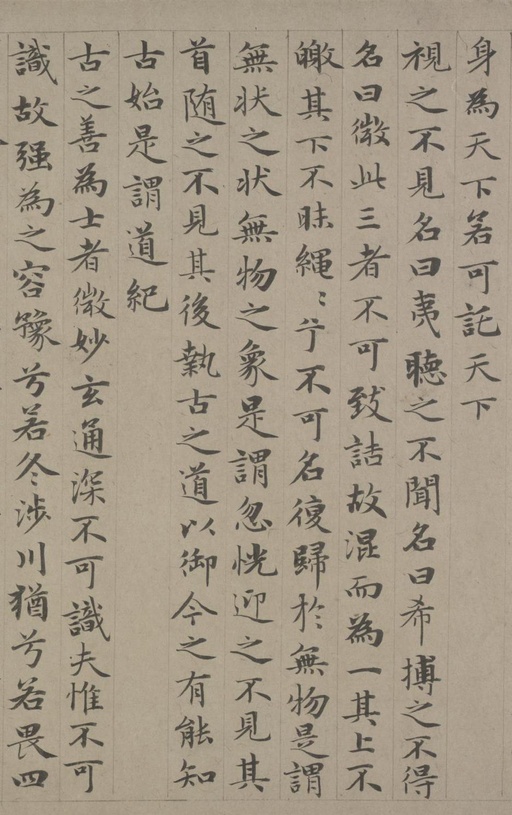 身為天下若可託天下
視之不見名曰夷聽之不聞名曰希搏之不得
名曰微此三者不可致詰故混而為一其上不
皦其下不昧繩〻兮不可名復歸於無物是謂
無状之状無物之象是謂忽恍迎之不見其
首随之不見其後執古之道以御今之有能知
古始是謂道紀
古之善為士者微妙玄通深不可識夫惟不可
識故强為之容豫兮若冬涉川猶兮若畏四